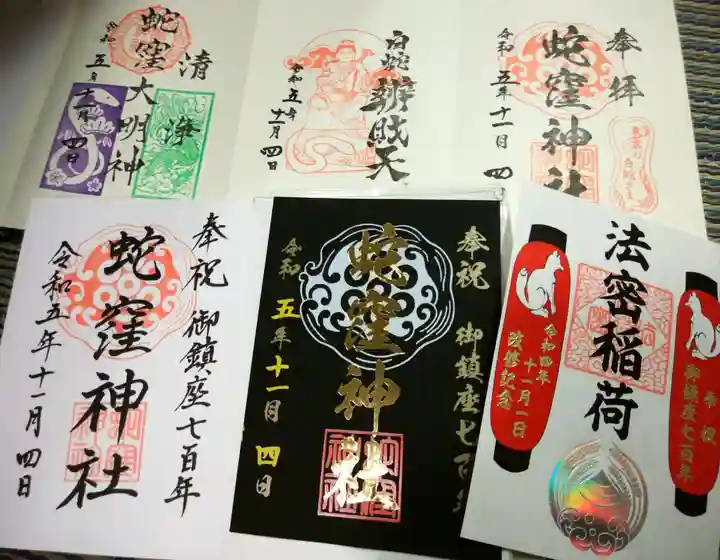 清浄
蛇窪大明神
令和五年十一月四日
白蛇辨財天
令和五年十一月四日
奉拝
蛇窪神社
令和五年十一月四
奉祝 御鎮座七百年
蛇窪神社
令和五年十一月四日
奉祝 御鎮座七百年
蛇窪神社
令和五年十一月四日
奉祝
御鎮座七百年
法密稲荷
令和四年
十一月一日
改修記念